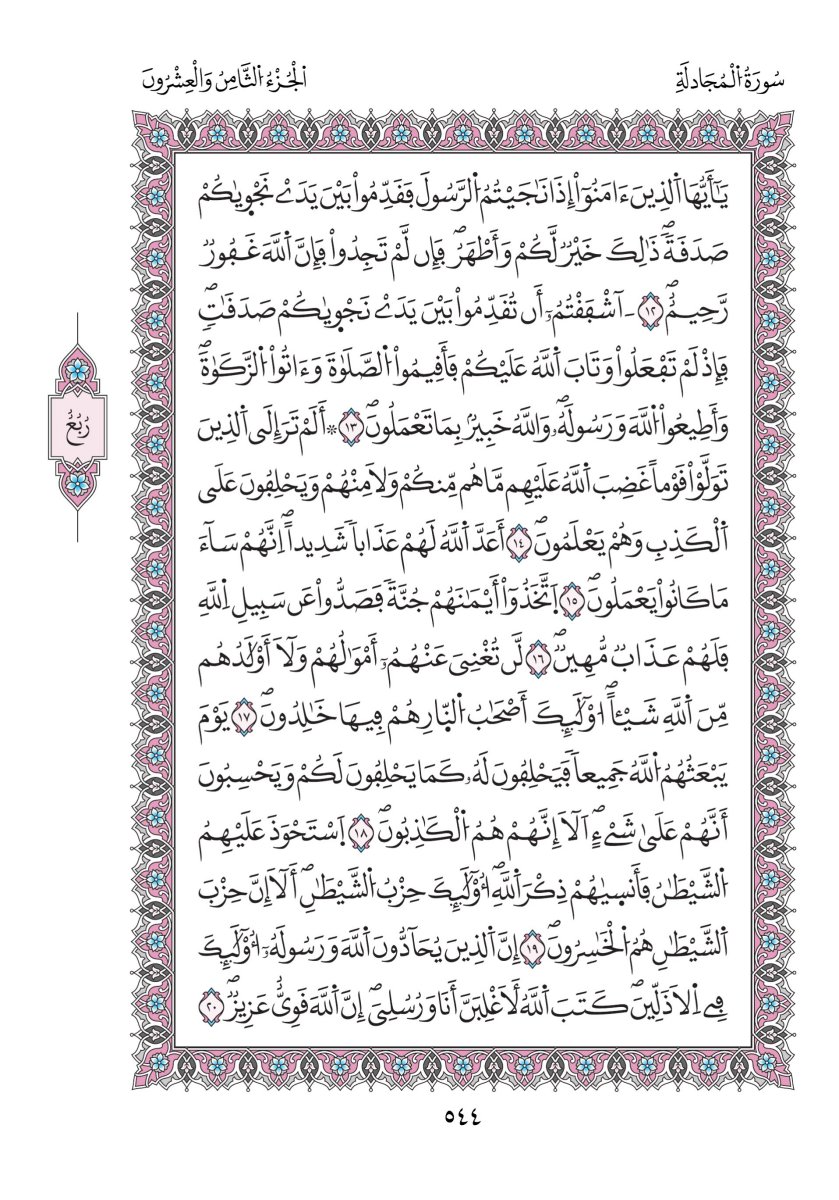 سُورَةُ اُ۬لْمُجَادلَةِ
اَلْجُزْءُ اُ۬لثَّامِنُ وَالْعِشْرُونَ
يَٰٓأَيُّهَا اَ۬لذِينَ ءَامَنُوٓاْ إِذَا نَٰجَيْتُمُ اُ۬لرَّسُولَ فَقَدِّمُواْ بَيْنَ يَدَےْ نَجْو۪يٰكُمْ
صَدَقَةٗۖ ذَٰلِكَ خَيْرٞ لَّكُمْ وَأَطْهَرُۖ فَإِن لَّمْ تَجِدُواْ فَإِنَّ اَ۬للَّهَ غَفُورٞ
رَّحِيمٌۖ ١٢ ءَآشْفَقْتُمُۥٓ أَن تُقَدِّمُواْ بَيْنَ يَدَےْ نَجْو۪يٰكُمْ صَدَقَٰتٖۖ
فَإِذْ لَمْ تَفْعَلُواْ وَتَابَ اَ۬للَّهُ عَلَيْكُمْ فَأَقِيمُواْ اُ۬لصَّلَوٰةَ وَءَاتُواْ اُ۬لزَّكَوٰةَۖ
وَأَطِيعُواْ اُ۬للَّهَ وَرَسُولَهُۥۖ وَاللَّهُ خَبِيرُۢ بِمَا تَعْمَلُونَۖ ١٣ ۞أَلَمْ تَرَ إِلَى اَ۬لذِينَ
رُبُعُ
تَوَلَّوْاْ قَوْماً غَضِبَ اَ۬للَّهُ عَلَيْهِم مَّا هُم مِّنكُمْ وَلَا مِنْهُمْ وَيَحْلِفُونَ عَلَى
اَ۬لْكَذِبِ وَهُمْ يَعْلَمُونَۖ ١٤ أَعَدَّ اَ۬للَّهُ لَهُمْ عَذَاباٗ شَدِيداًۖ اِنَّهُمْ سَآءَ
مَا كَانُواْ يَعْمَلُونَۖ ١٥ اَ۪تَّخَذُوٓاْ أَيْمَٰنَهُمْ جُنَّةٗ فَصَدُّواْ عَن سَبِيلِ اِ۬للَّهِ
فَلَهُمْ عَذَابٞ مُّهِينٞۖ ١٦ لَّن تُغْنِيَ عَنْهُمُۥٓ أَمْوَٰلُهُمْ وَلَآ أَوْلَٰدُهُم
مِّنَ اَ۬للَّهِ شَيْـٔاًۖ ا۟وْلَٰٓئِكَ أَصْحَٰبُ اُ۬لنّ۪ارِ هُمْ فِيهَا خَٰلِدُونَۖ ١٧ يَوْمَ
يَبْعَثُهُمُ اُ۬للَّهُ جَمِيعاٗ فَيَحْلِفُونَ لَهُۥ كَمَا يَحْلِفُونَ لَكُمْ وَيَحْسِبُونَ
أَنَّهُمْ عَلَىٰ شَےْءٍۖ اَلَآ إِنَّهُمْ هُمُ اُ۬لْكَٰذِبُونَۖ ١٨ اَ۪سْتَحْوَذَ عَلَيْهِمُ
اُ۬لشَّيْطَٰنُ فَأَنس۪يٰهُمْ ذِكْرَ اَ۬للَّهِۖ أُوْلَٰٓئِكَ حِزْبُ اُ۬لشَّيْطَٰنِۖ أَلَآ إِنَّ حِزْبَ
اَ۬لشَّيْطَٰنِ هُمُ اُ۬لْخَٰسِرُونَۖ ١٩ إِنَّ اَ۬لذِينَ يُحَآدُّونَ اَ۬للَّهَ وَرَسُولَهُۥٓ أُوْلَٰٓئِكَ
فِے اِ۬لَاذَلِّينَۖ كَتَبَ اَ۬للَّهُ لَأَغْلِبَنَّ أَنَا وَرُسُلِيَۖ إِنَّ اَ۬للَّهَ قَوِيٌّ عَزِيزٞۖ ٢٠
٥٤٤